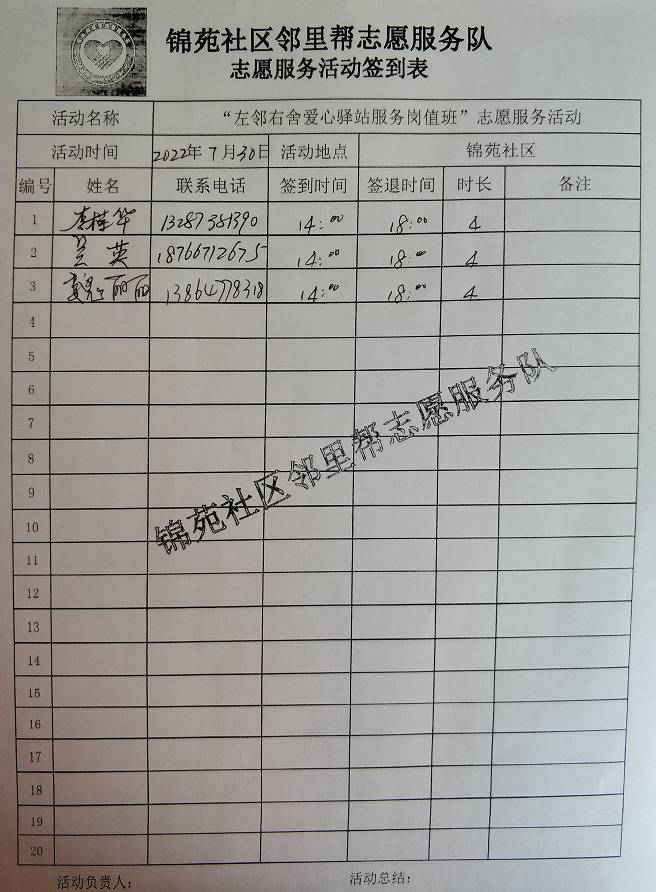 锦苑社区邻里帮志愿服务队
志愿服务活动签到表
活动名称 “左邻右舍爱心驿站服务岗值班”志愿服务活动
活动时间 2022年7月30日 活动地点 锦苑社区
编号 姓名 联系电话 签到时间 签退时间 时长 备注
1 李桂华 13287381390 14:00 18:00 4
2 兰英 18766712675 14:00 18:00 4
3 魏丽丽 13864778318 14:00 18:00 4
4
5
6
7
8
9
10
11
12
13
14
15
16
17
18
19
20
锦苑社区邻里帮志愿服务队
活动负责人: 活动总结: